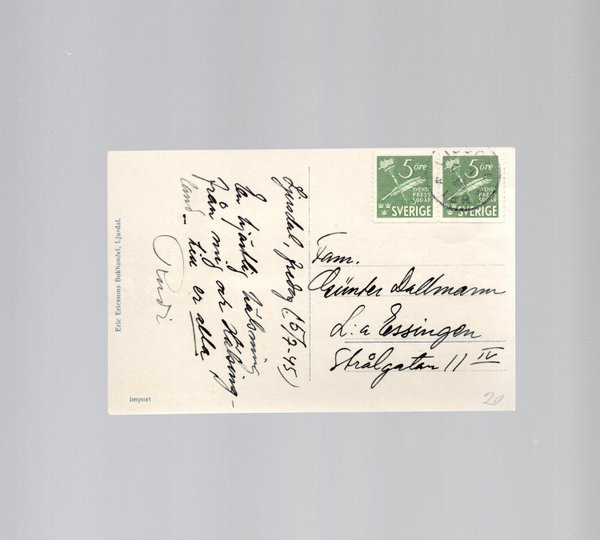 Eric Ericssons Bokhandel, Ljusdal.
Import
Ljusdal, fredag (6/7-45)
En hjärtlig hälsning
från mig och Hälsing-
land – till er alla.
Rudi
5 öre
SVENSK
PRESS
300 ÅR
SVERIGE
5 öre
SVENSK
PRESS
300 ÅR
SVERIGE
Fam.
Günter Dallmann
L:a Essingen
Strålgatan 11 IV
20